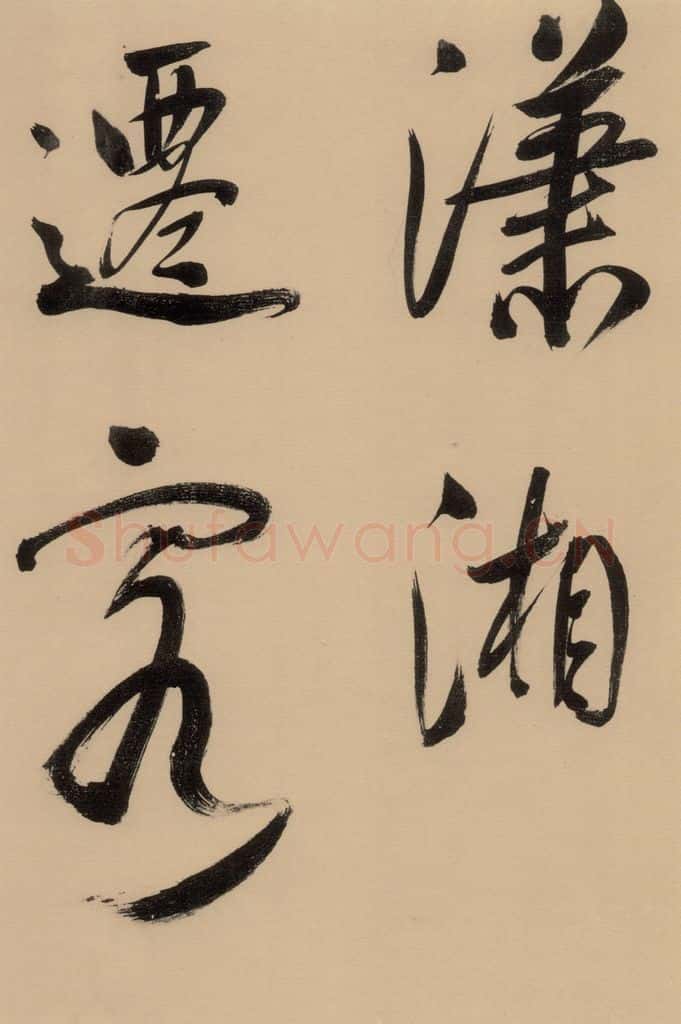 瀟湘
遷客
Shufawang.CN